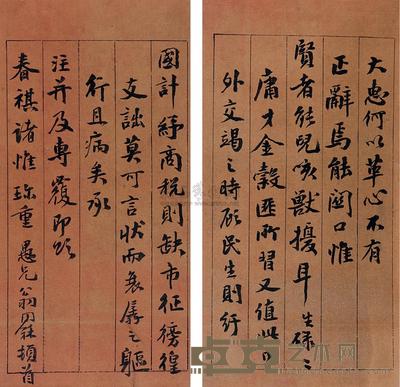 大惠何以革心不有
正辭焉能關口惟
賢者能兒咳獸擾耳生碌
庸才金穀匪所習又值此
外交竭之時顧民生則
國計紓商税則缺市征徬徨
支詘莫可言狀而衰孱之軀
行且病矣承
注并及專覆即頌
春祺諸惟珎重 愚兄翁同龢頓首